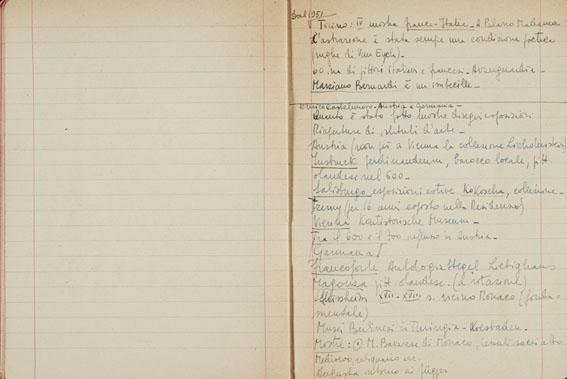 1951
Torino: IV mostra Franco-Italia. A Palazzo Madama
L'astrazione è stata sempre una condizione poetica
(rughe di Van Eyck).
60.na di pittori italiani e francesi. Avanguardia.
Marziano Bernardi è un imbecille.
Enrico Castelnuovo. Austria e Germania.
Quanto è stato fatto mostre disegni esposizioni
Riaperture di istituti d'arte.
Austria (non più a Vienna la collezione Lichtenstein)
Insbruck ferdinandeum, barocco locale, pitt.
olandese nel 600.
Salisburgo esposizioni estive. Kokoscka, collezione.
Czerny (per 16 anni esposto nella Residenza)
Vienna Kuntistorische Museum.
Tra il 600 e il 700 influsso in Austria.
Germania
Francoforte Stegel Liebighaus
Magonza pitt. olandese. (a rotazione)
Schleissheim XVII - XVIII s. vicino Monaco (fonda-
mentale)
Musei Berlinesi in Turingia. Wiesbaden.
Mostre: ① M. Bavarese di Monaco, tesori sacri alto
Medioevo, ec.
Augusta intorno ai Függer